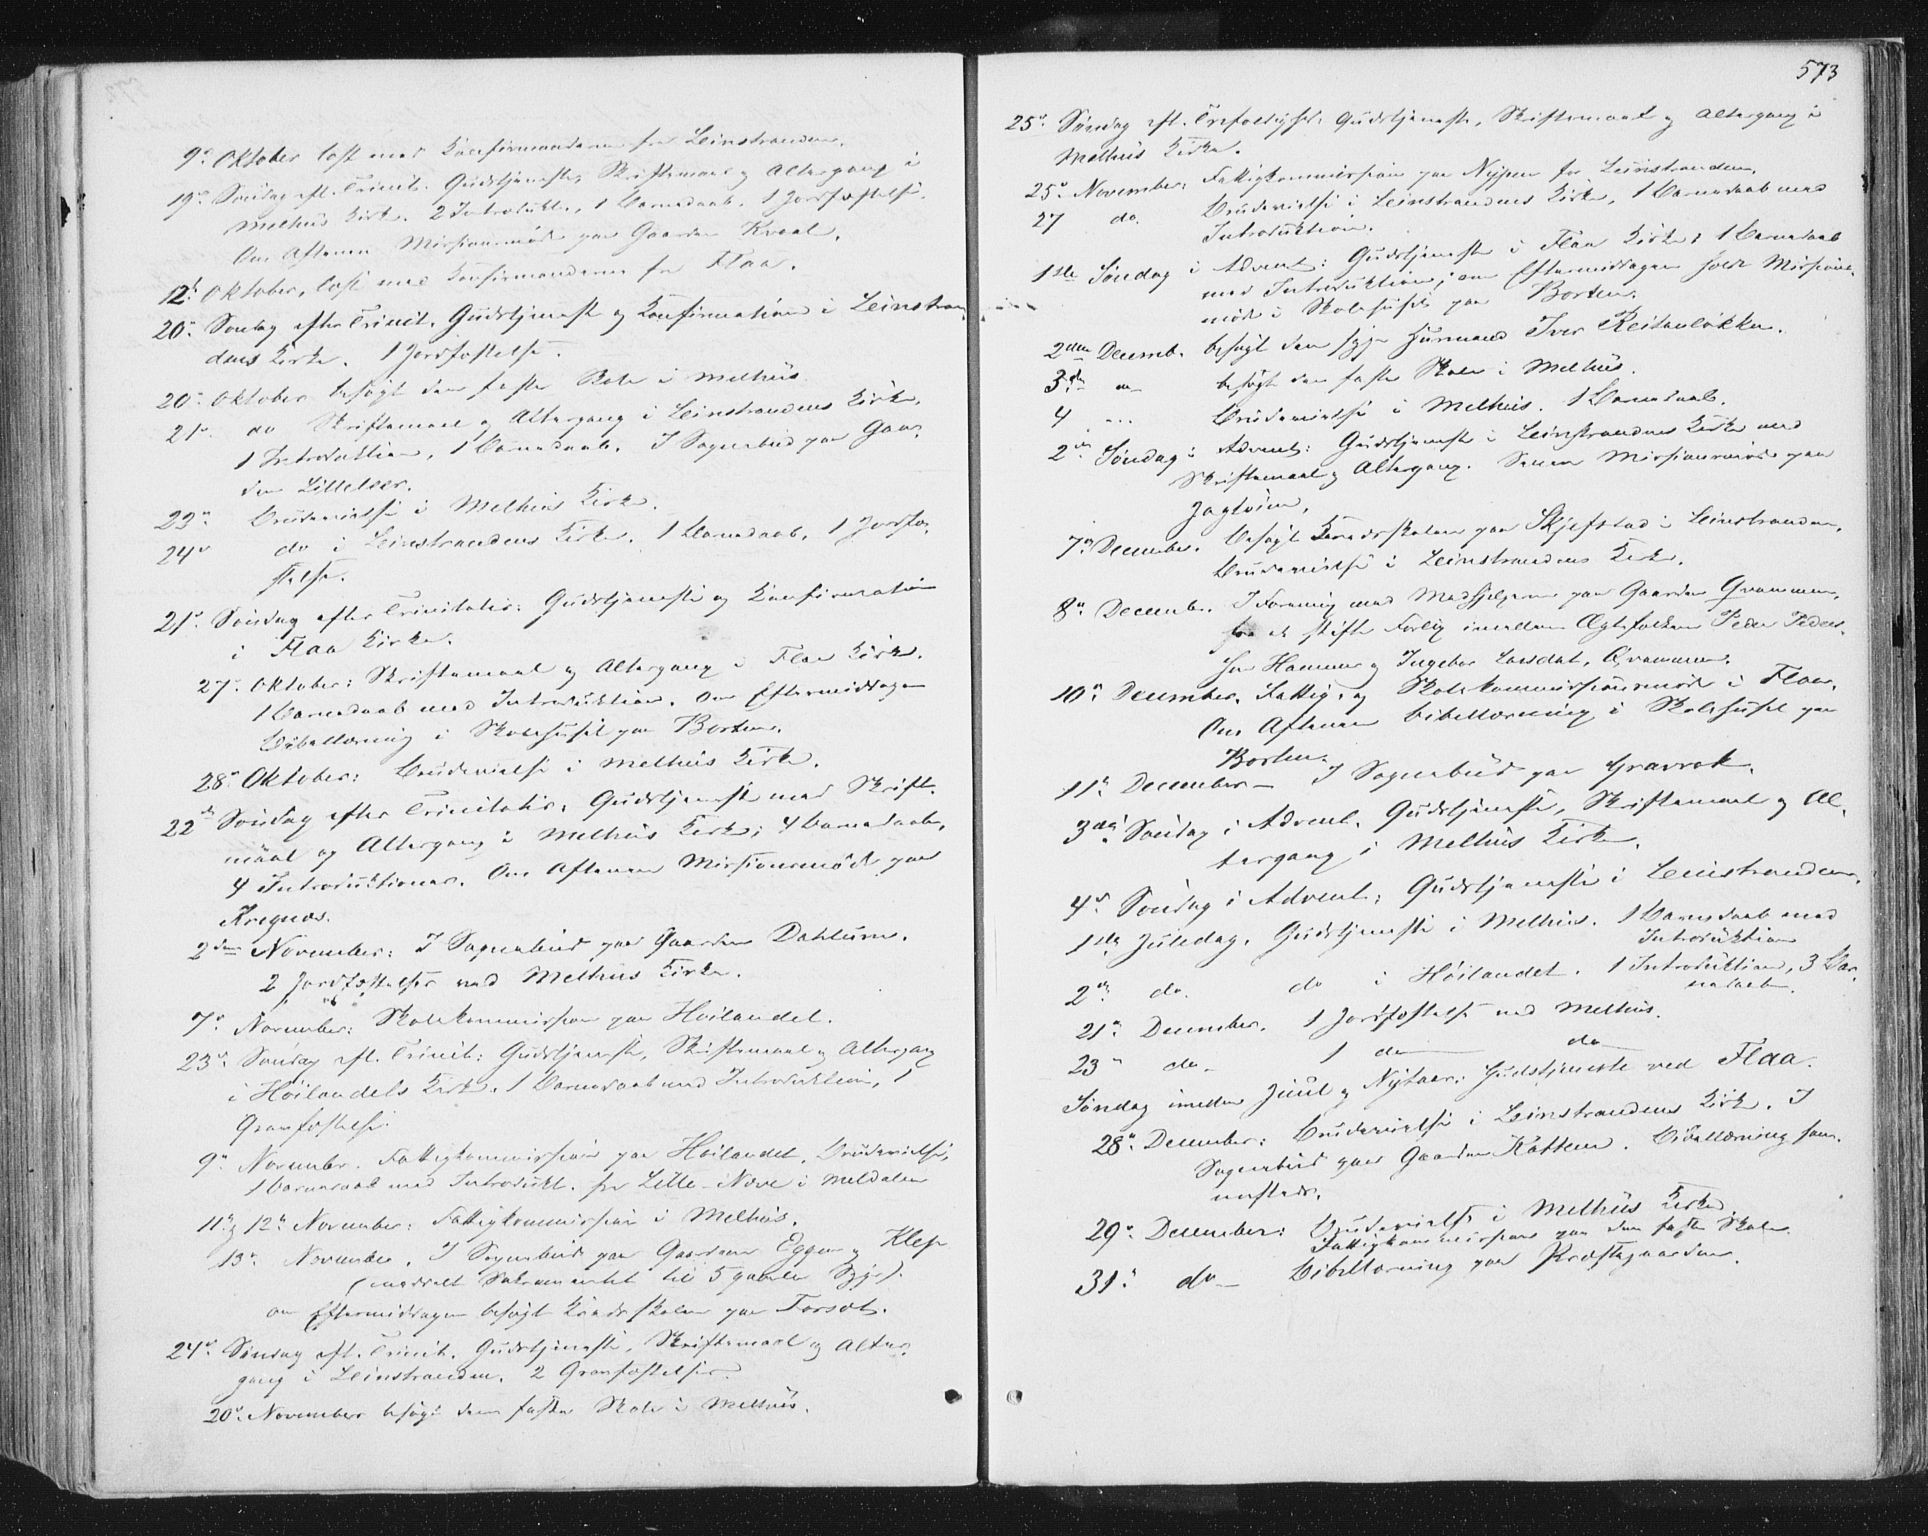 9de Oktober læst med Konfirmanderne fra Leinstranden.
19de Søndag eft. Trinit. Gudstjeneste, Skriftemaal og Altergang i
Melhus Kirke. 2 Introdukt., 1 Barnedaab. 1 Jordfæstelse.
Om Aftenen Missionsmøde paa Gaarden Kvaal.
12te Oktober, læst med Konfirmanderne fra Flaa.
20de Søndag efter Trinit. Gudstjeneste og Konfirmation i Leinstran
dens Kirke. 1 Jordfæstelse.
20de Oktober besøgt den faste Skole i Melhus
21de do Skriftemaal og Altergang i Leinstrandens Kirke.
1 Introduktion, 1 Barnedaab. I Sognebud paa Gaar
den Lilleleer.
23de Brudevielse i Melhus Kirke.
24de do i Leinstrandens Kirke. 1 Barnedaab. 1 Jordfæ-
stelse.
21de Søndag efter Trinitatis: Gudstjeneste og Konfirmation
i Flaa Kirke.
27de Oktober: Skriftemaal og Altergang i Flaa Kirke.
1 Barnedaab med Introduktion. Om Eftermiddagen
Bibellæsning i Skolehuset paa Borten.
28de Oktober: Brudevielse i Melhus Kirke.
22de Søndag efter Trinitatis. Gudstjeneste med Skrifte-
maal og Altergang i Melhus Kirke; 4 Barnedaab,
4 Introduktioner. Om Aftenen Missionsmøde paa
Kregnes.
2den November: I Sognebud paa Gaarden Dahlum.
2 Jordfæstelser ved Melhus Kirke.
7de November: Skolekommission paa Høilandet.
23de Søndag eft. Trinit: Gudstjeneste, Skriftemaal og Altergang
i Høilandets Kirke. 1 Barnedaab med Introduktion, 1
Gravfæstelse.
9de November. Fattigkommission paa Høilandet. Brudevielse,
1 Barnedaab med Introdukt. fra Lille-Næve i Meldalen
11te & 12te November: Fattigkommission i Melhus.
13de November. I Sognebud paa Gaardene Eggen og Klep
(meddelt Sakramentet til 5 gamle Syge).
om Eftermiddagen besøgt Kredsskolen paa Forset.
24de Søndag eft. Trinit. Gudstjeneste, Skriftemaal og Alter-
gang i Leinstranden. 2 Gravfæstelser.
20de November besøgt den faste Skole i Melhus.
573
25de Søndag eft. Trefoldighed: Gudstjeneste, Skriftemaal og Altergang i
Melhus Kirke.
25de November: Fattigkommission paa Nypen for Leinstranden.
27 do. Brudevielse i Leinstrandens Kirke, 1 Barnedaab med
Introduktion.
1ste Søndag i Advent: Gudstjeneste i Flaa Kirke; 1 Barnedaab
med Introduktion; om Eftermiddagen holdt Missions-
møde i Skolehuset paa Borten.
2den Decemb. besøgt den syge Huusmand Iver Reitanløkken.
3die " besøgt den faste Skole i Melhus.
4 ... Brudevielse i Melhus. 1 Barnedaab.
2den Søndag i Advent: Gudstjeneste i Leinstrandens Kirke med
Skriftemaal og Altergang. Senere Missionsmøde paa
Jagtøien.
7de December. besøgt Kredsskolen paa Skjefstad i Leinstranden.
Brudevielse i Leinstrandens Kirke.
8de December. I Forening med Medhjelperne paa Gaarden Gravmem,
for at stifte Forlig imellem Ægtefolkene Peder Peders-
sen Hammer og Ingebor Larsdat. Gravmem.
10de December. Fattig- og Skolekommissionsmøde i Flaa.
Om Aftenen Bibellæsning i Skolehuset paa
Borten.
11te December - I Sognebud paa Gravrok.
3die Søndag i Advent. Gudstjeneste, Skriftemaal og Al-
tergang i Melhus Kirke.
4de Søndag i Advent: Gudstjeneste i Leinstranden.
1ste Juledag. Gudstjeneste i Melhus. 1 Barnedaab med
Introduktion
2den do. do i Høilandet. 1 Introduktion, 3 Bar-
nedaab.
21de December. 1 Jordfæstelse ved Melhus.
23de do. 1 do do
Søndag imellem Juul og Nytaar: Gudstjeneste ved Flaa.
28de December: Brudevielse i Leinstrandens Kirke. I
Sognebud paa Gaarden Kattem. Bibellæsning sam-
mesteds.
29de December: Brudevielse i Melhus Kirke.
Fattigkommission paa den faste Skole.
31de do - Bibellæsning paa Præstegaarden.